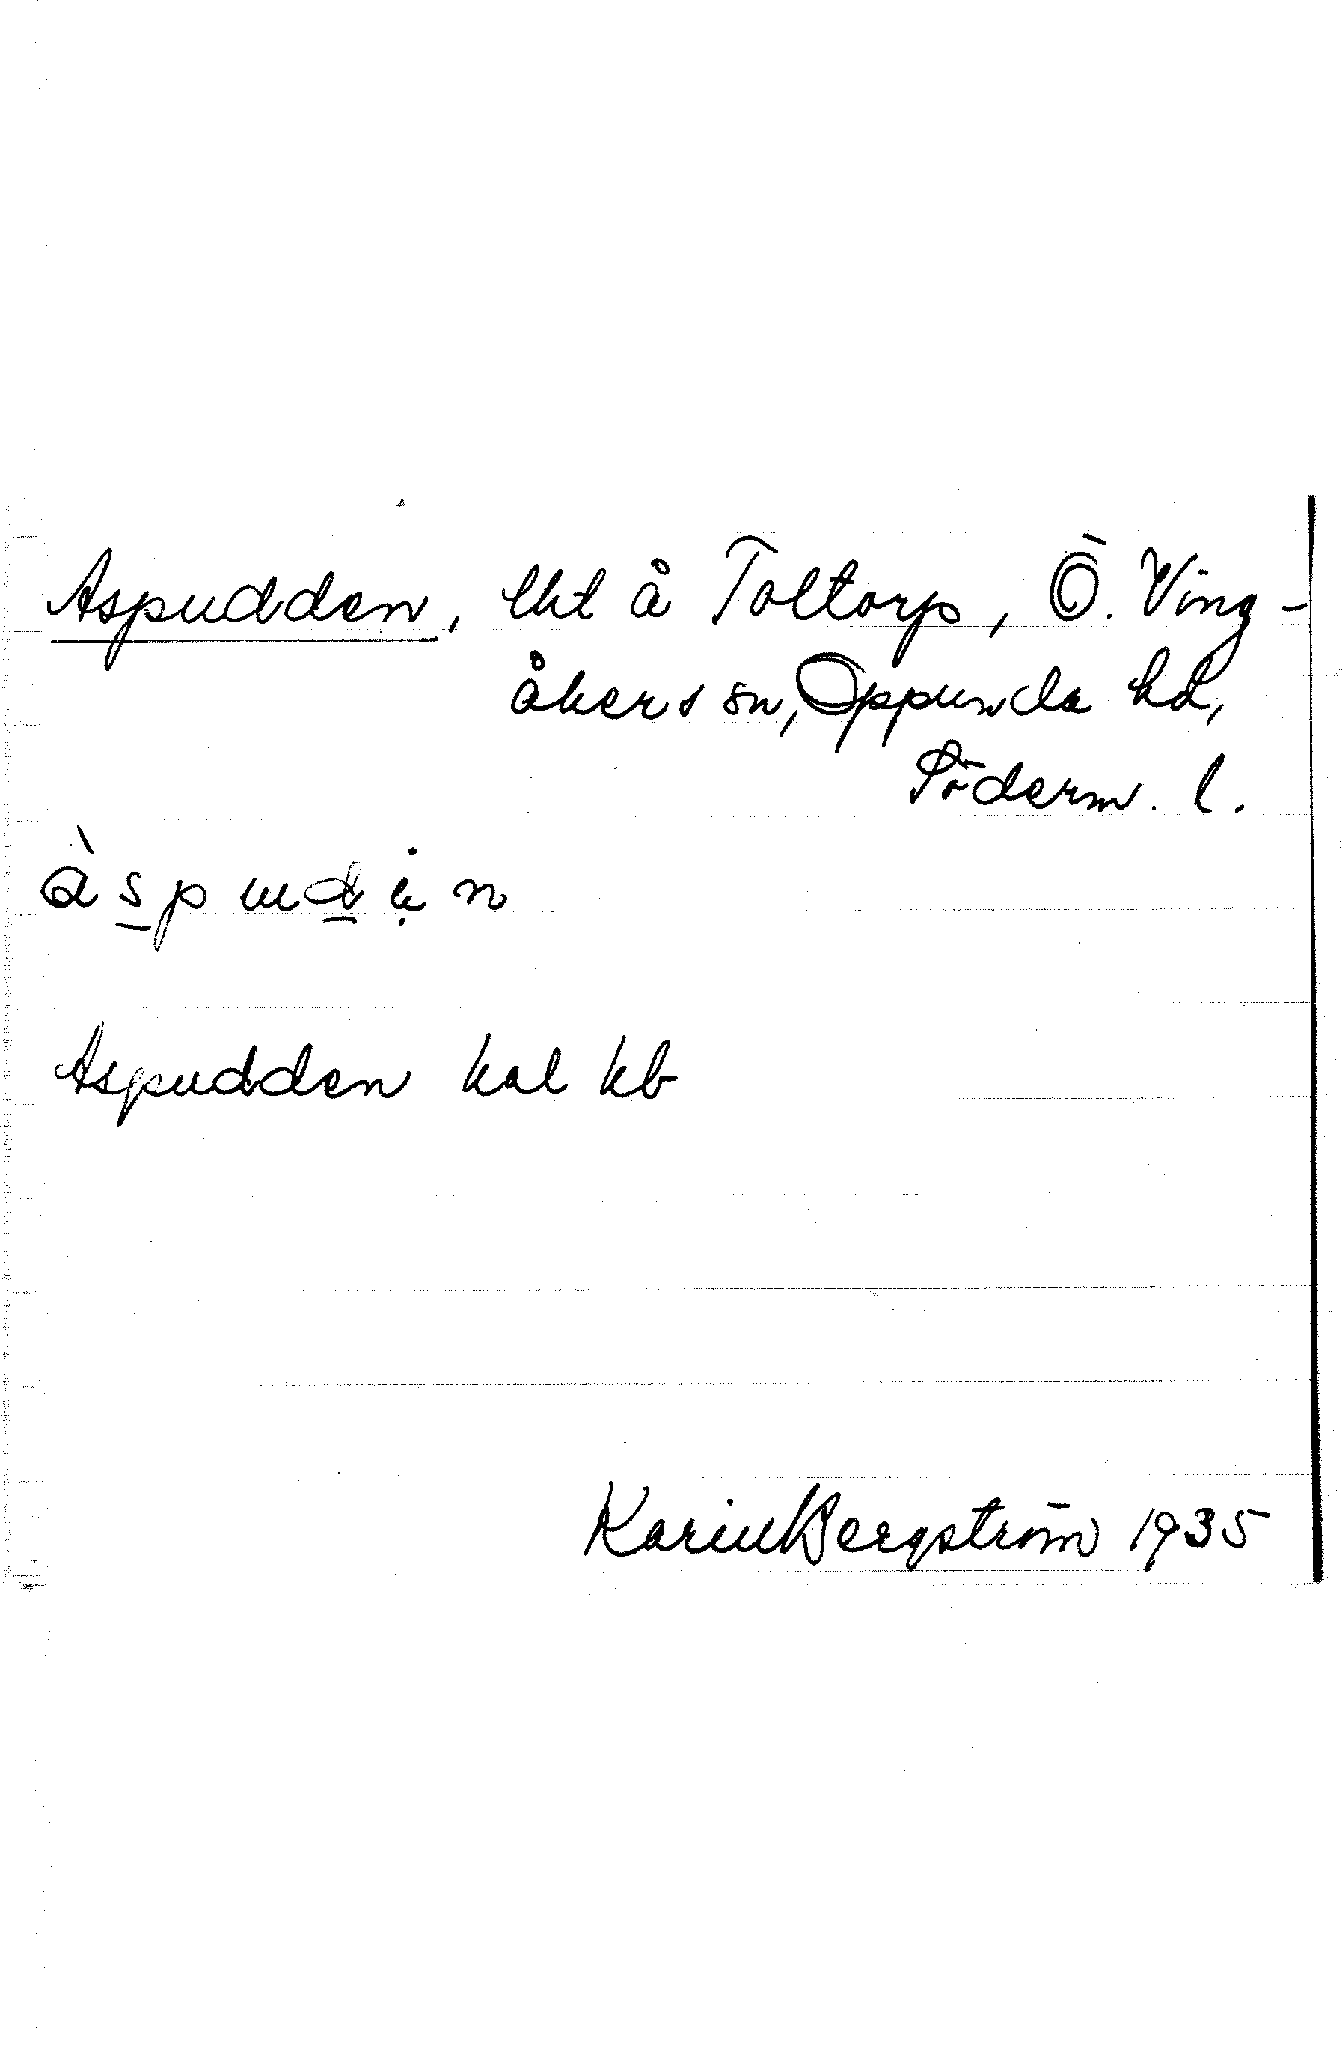 Aspudden, lht å Toltorp, Ö. Ving-
åkers sn, Oppunda hd,
Söderm. l.
Aspudden kal kb
Karin Bergström 1935